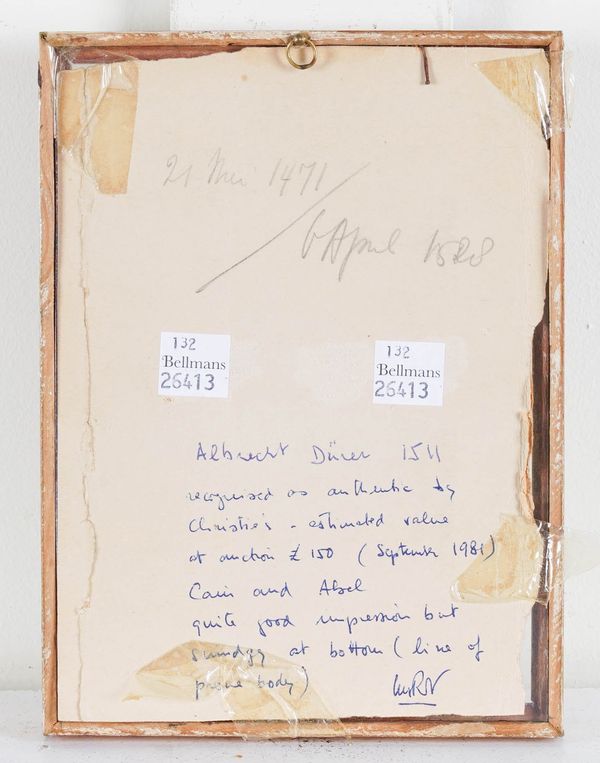 21 Mei 1471
6 April 1528
132
Bellmans
26413
132
Bellmans
26413
Albrecht Dürer 1511
recognised as authentic by
Christie's - estimated value
at auction £150 (September 1981)
Cain and Abel
quite good impression but
smudgy at bottom (line of
prone body)